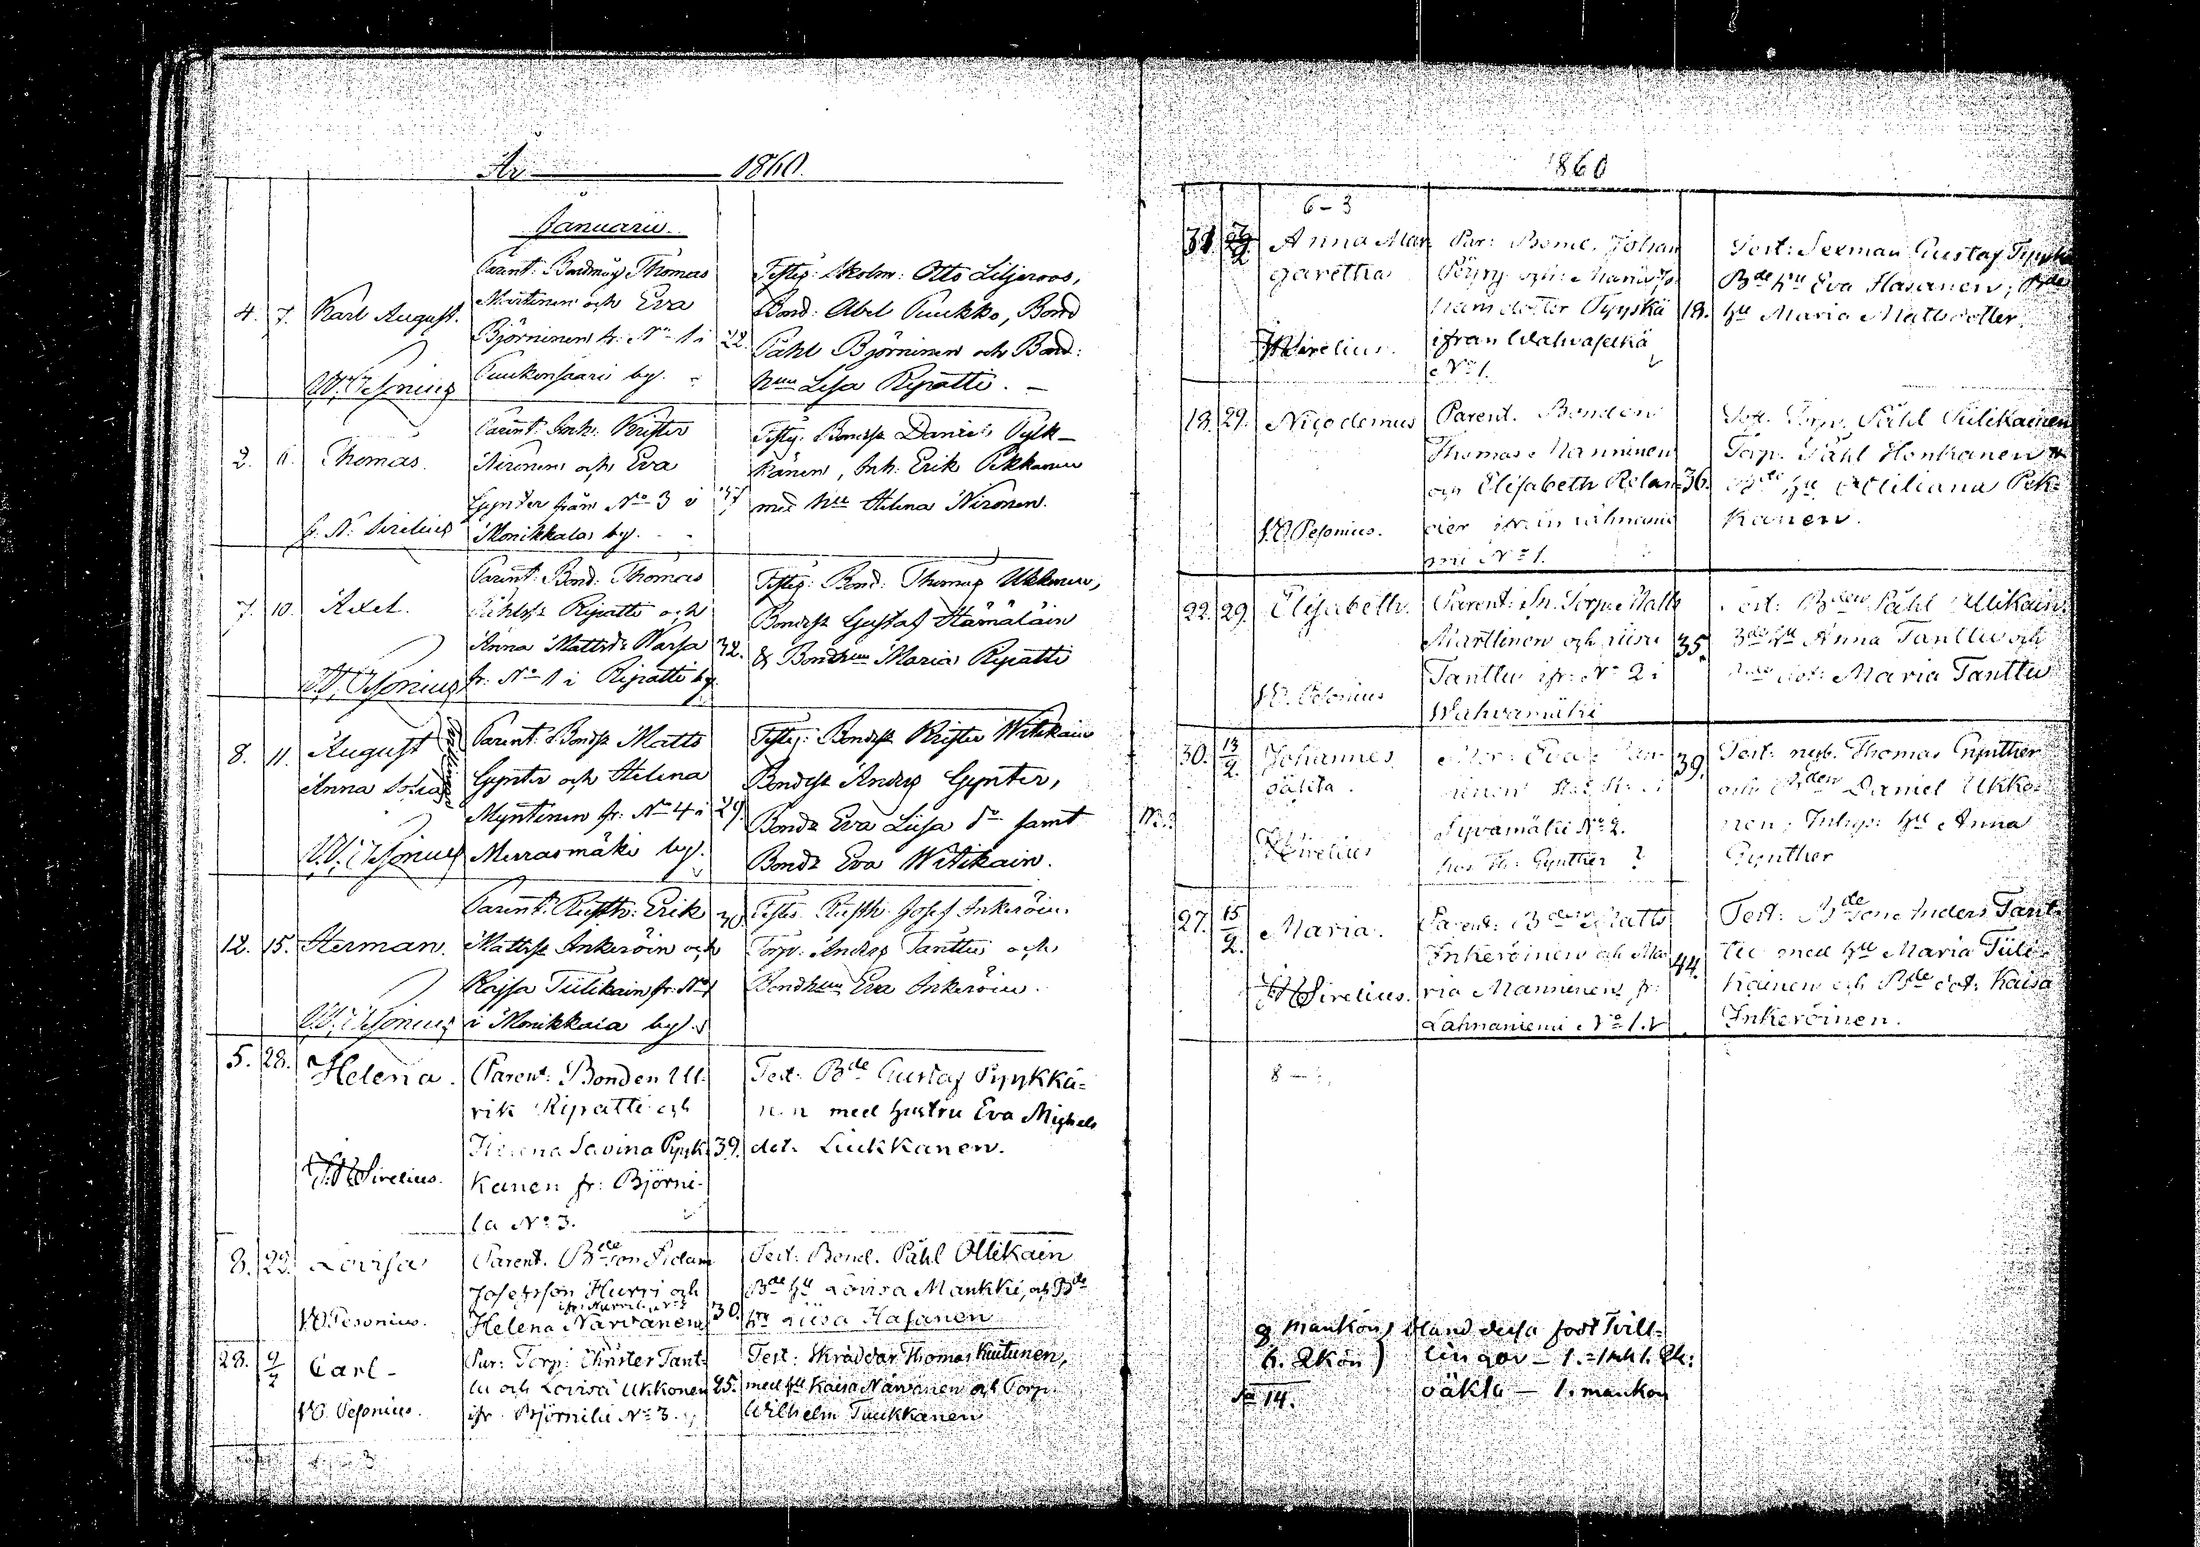 År 1860.
Januarii
4. 7. Karl August.
W. Pesonius
Parent: Bondmåg Thomas
Martinen och Eva
Björninen fr. No 1 i
Puukonsaari by.
22.
Testes: Skolm: Otto Liljeroos,
Bond: Abel Puukko, Bond
Påhl Björninen och Bond:
hun Lisa Ripatti.
2. 11. Thomas.
Sirelius
Parent: Inh: Krister
Nironen och Eva
Gynter från No 3 i
Monikkala by.
37
Testes: Bondes: Daniel Pylk-
känen, Inh: Erik Pekkanen
med hu Helena Nironen.
7. 10. Axel.
W. Pesonius
Parent: Bond: Thomas
Ripatti och
Anna Mattsd: Warsa
fr. No 1 i Ripatti by.
32.
Testes: Bond: Thomas Ukkonen,
Bondess Gustaf Hämäläin
& Bondhun Maria Ripatti
8. 11. August
Anna Sofia
W. Pesonius
Parent: Bondess Matts
Gynter och Helena
Myntinen fr. No 4 i
Murrasmäki by.
29.
Testes: Bondess Krister Witikain
Bondess Anders Gynter,
Bondd Eva Liisa Do samt
Bondd Eva Witikain.
12. 15. Herman.
W. Pesonius
Parent: Rusth: Erik
Mattss Inkeröin och
Kajsa Tiilikain fr. No 1
i Monikkala by.
30.
Testes: Rusth: Josef Inkeröin
Torp: Anders Tanttu och
Bondhun Eva Inkeröin.
5. 28. Helena.
Sirelius.
Parent: Bonden Ul-
rik Ripatti och
Helena Savina Pyyk-
känen fr: Björni-
la No 3.
39.
Test: Bde Gustaf Pyykkä-
nen med hustru Eva Michels
dot. Liukkanen.
8. 22. Lovisa
W. Pesonius.
Parent. Bdeson Adam
Josefsson Hurri och
Helena Narvanen
30.
Test: Bond. Påhl Ollikain
Bde hu Lovisa Mankki, och Bde
hu Liisa Hasanen
23. 9/2 Carl-
W. Pesonius.
Par: Torp: Christer Tant-
tu och Lovisa Ukkonen
ifr Björnilä No 3.
25.
Test: Skräddar Thomas Kuitunen,
med hu Kaisa Närvänen och Torp:
Wilhelm Tuukkanen
1860
6-3
31 Anna Mar
garetha
Sirelius.
Par: Bond. Johan
Pöyry och Maria Jo
hansdotter Tyyskä
ifrån Wahvaselkä
No 1.
18.
Test: Sexman Gustaf Tyyskä
Bde hu Eva Hasanen, Bde
hu Maria Mattsdotter.
18. 29. Nicodemus
W. Pesonius.
Parent. Bonden
Thomas Manninen
och Elisabeth Relan-
der ifrån Lahnanie
mi No 1.
36.
Test. Torp. Påhl Tiilikainen
Torp. Påhl Honkanen
Bde hu Pek-
kanen.
22. 29. Elisabeth.
W. Pesonius
Parent: Torp: Matts
Marttinen och Liisa
Tanttu ifr: No 2 i
Wahvamäki
35.
Test: Bden Påhl Ollikain.
Bde hu Anna Tanttu och
dot: Maria Tanttu
30. 13/2. Johannes
oäkta.
Sirelius
Mor: Eva
Syvämäki No 2.
hos Th: Gynther ?
39.
Test: nyb. Thomas Gynther
och Bden Daniel Ukko-
nen, Inhys: hu Anna
Gynther
27. 15/2. Maria.
Sirelius.
Parent: Bden Matts
Inkeröinen och Ma
ria Manninen fr:
Lahnaniemi No 1.
44.
Test: Bdeson Anders Tant-
tu med hu Maria Tiili-
kainen och Bde dot: Kaisa
Inkeröinen.
8 mankön) bland dessa född Tvill-
6. Qkön) lingar - 1.
Sa 14. oäkta - 1. mankön